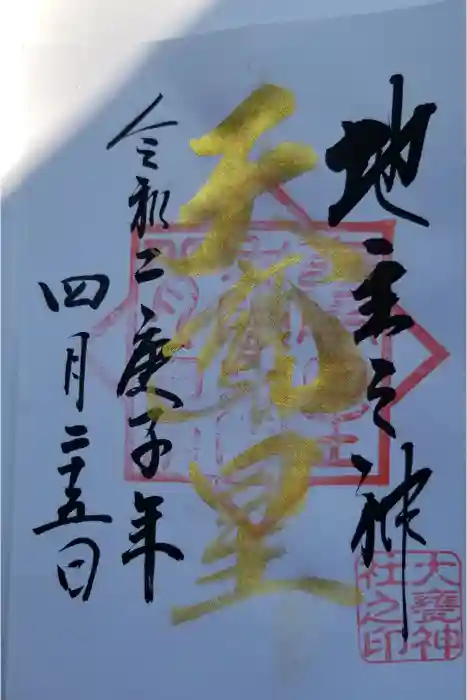 地主之神
天甕星
令和二庚子年
四月二十五日
大甕神
社之印